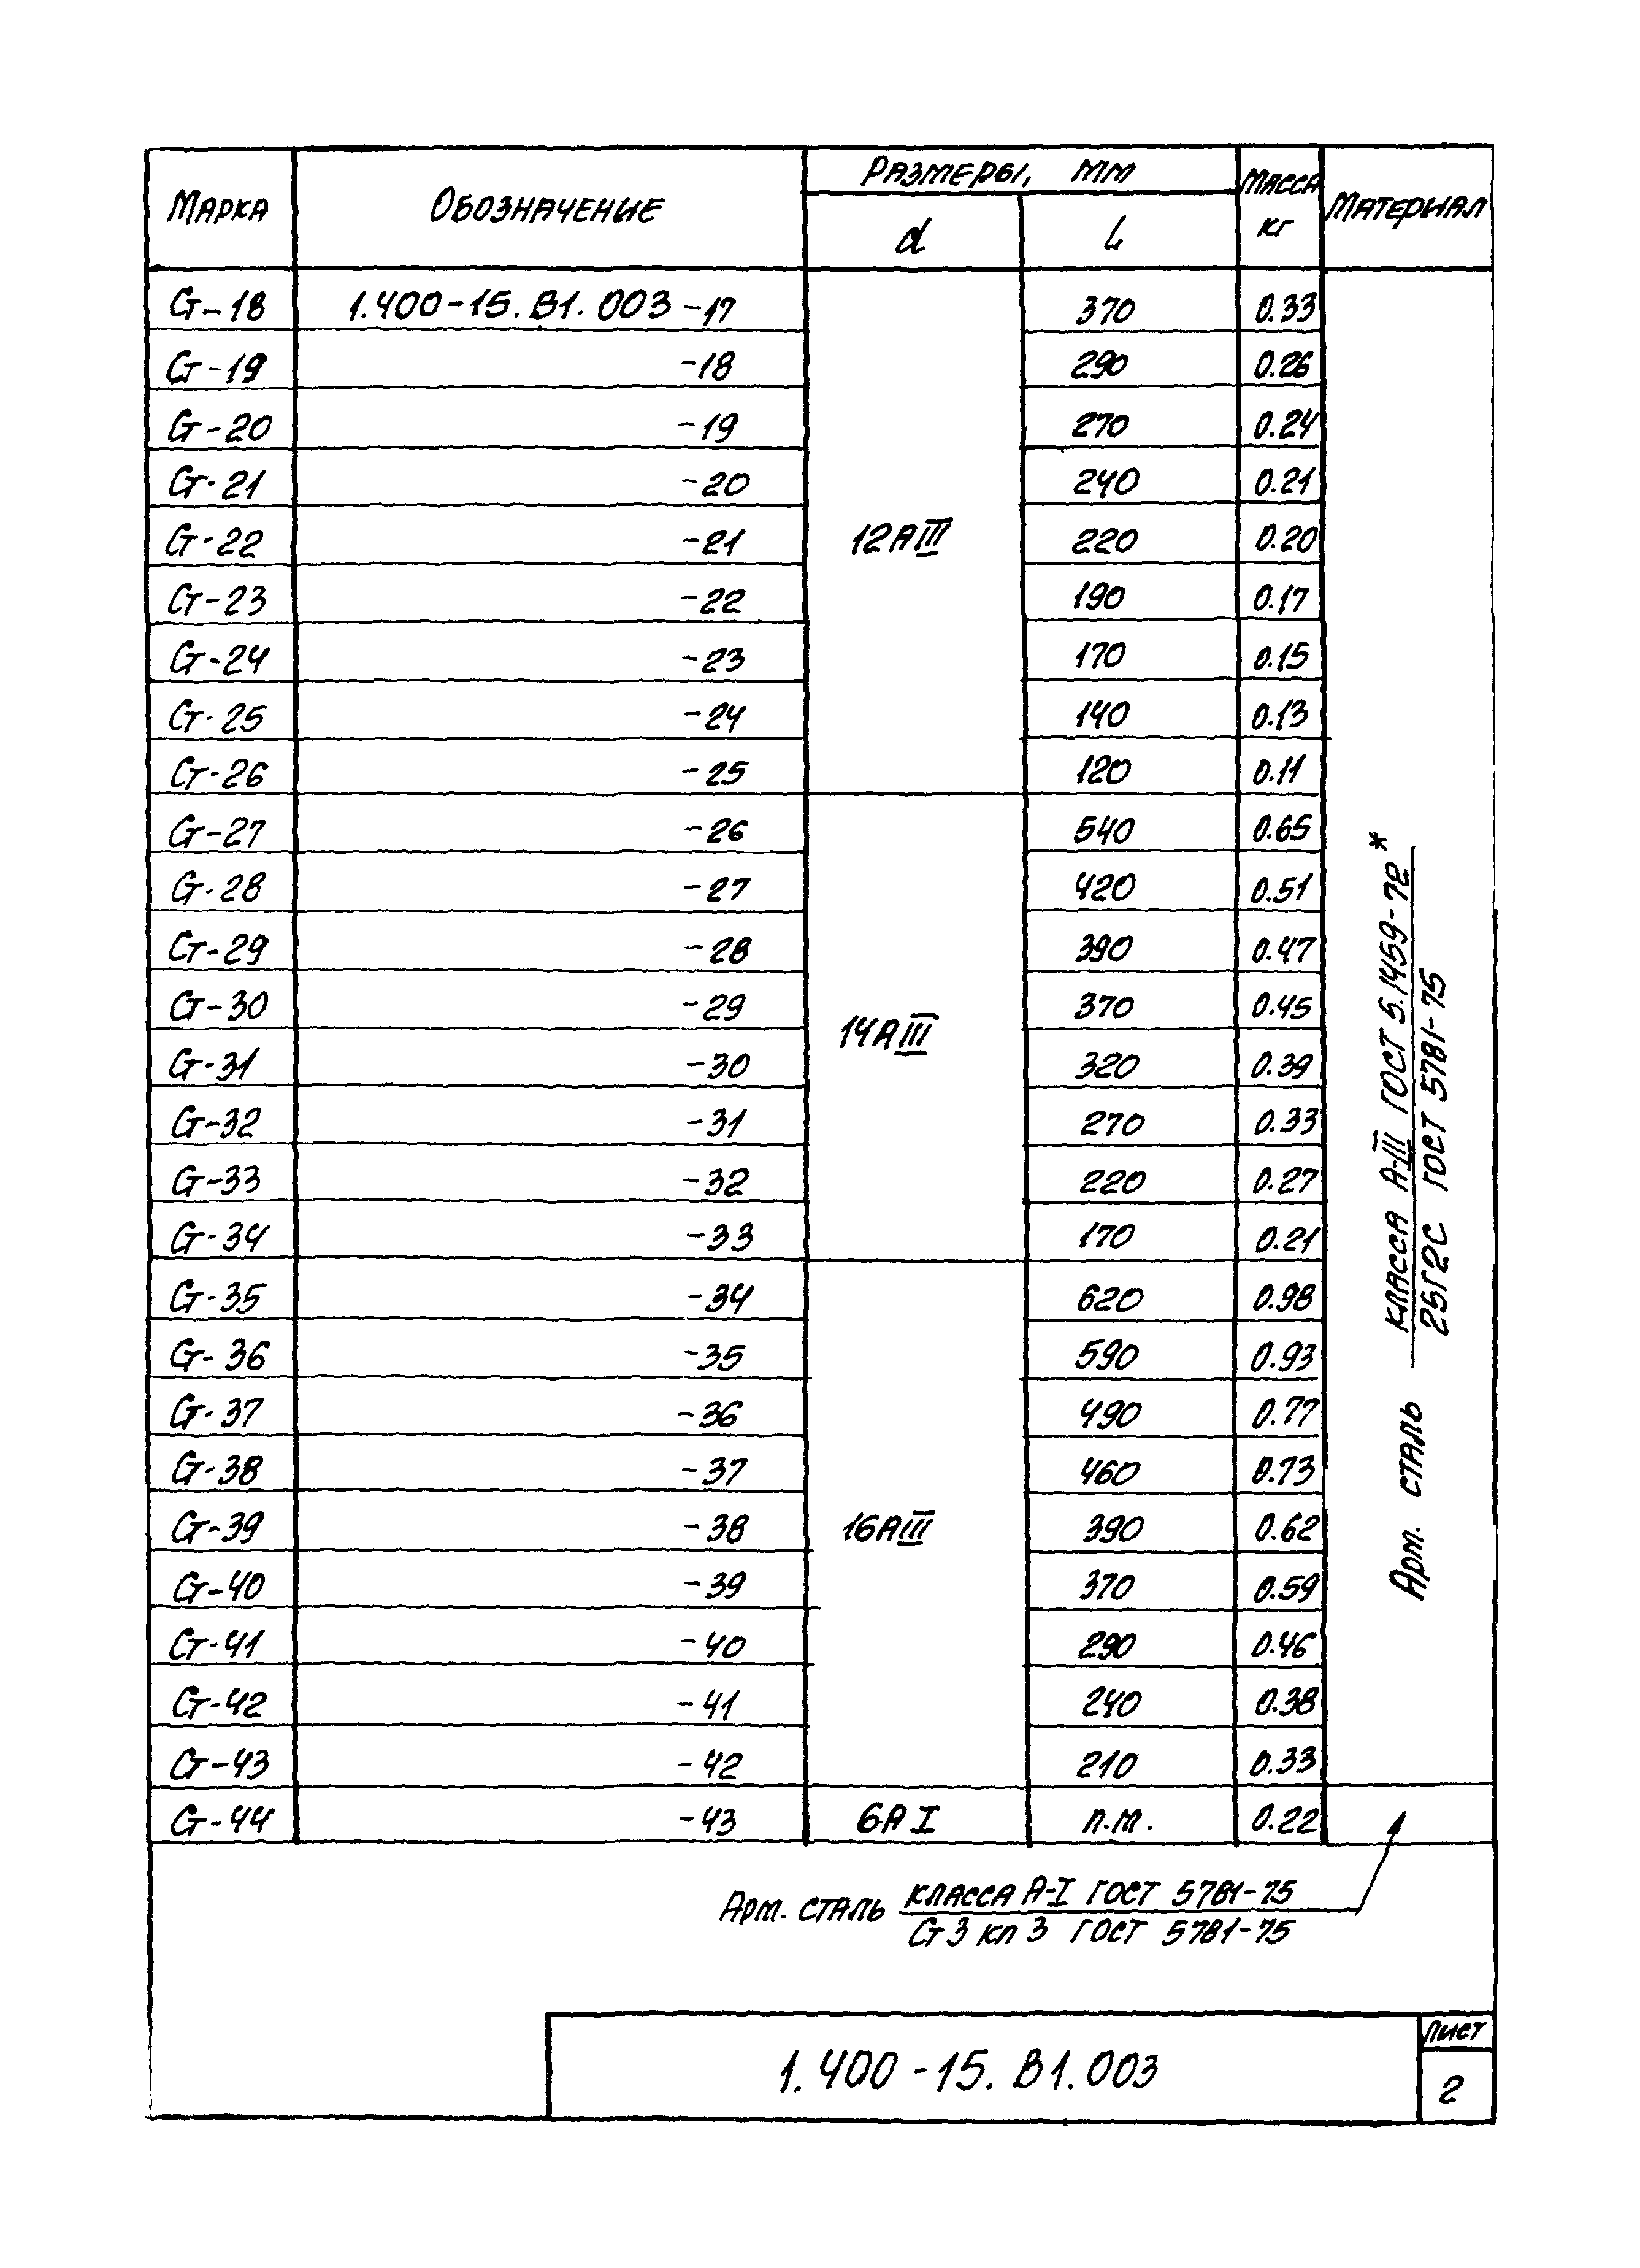 Марка Обозначение Размеры, мм Масса кг Материал
d L
Ст-18 1.400-15.В1.003 -17 370 0.33
Ст-19 -18 290 0.26
Ст-20 -19 270 0.24
Ст-21 -20 240 0.21
Ст-22 -21 12АIII 220 0.20
Ст-23 -22 190 0.17
Ст-24 -23 170 0.15
Ст-25 -24 140 0.13
Ст-26 -25 120 0.11
Ст-27 -26 540 0.65
Ст-28 -27 420 0.51
Ст-29 -28 390 0.47
Ст-30 -29 14АIII 370 0.45
Ст-31 -30 320 0.39
Ст-32 -31 270 0.33
Ст-33 -32 220 0.27
Ст-34 -33 170 0.21
Ст-35 -34 620 0.98
Ст-36 -35 590 0.93
Ст-37 -36 490 0.77
Ст-38 -37 460 0.73
Ст-39 -38 16АIII 390 0.62
Ст-40 -39 370 0.59
Ст-41 -40 290 0.46
Ст-42 -41 240 0.38
Ст-43 -42 210 0.33
Ст-44 -43 6АI п.м. 0.22
Арм. сталь класса А-III ГОСТ 5.1459-72*
25Г2С ГОСТ 5781-75
Арм. сталь класса А-I ГОСТ 5781-75
Ст3 кп 3 ГОСТ 5781-75
1.400-15.В1.003
Лист
2